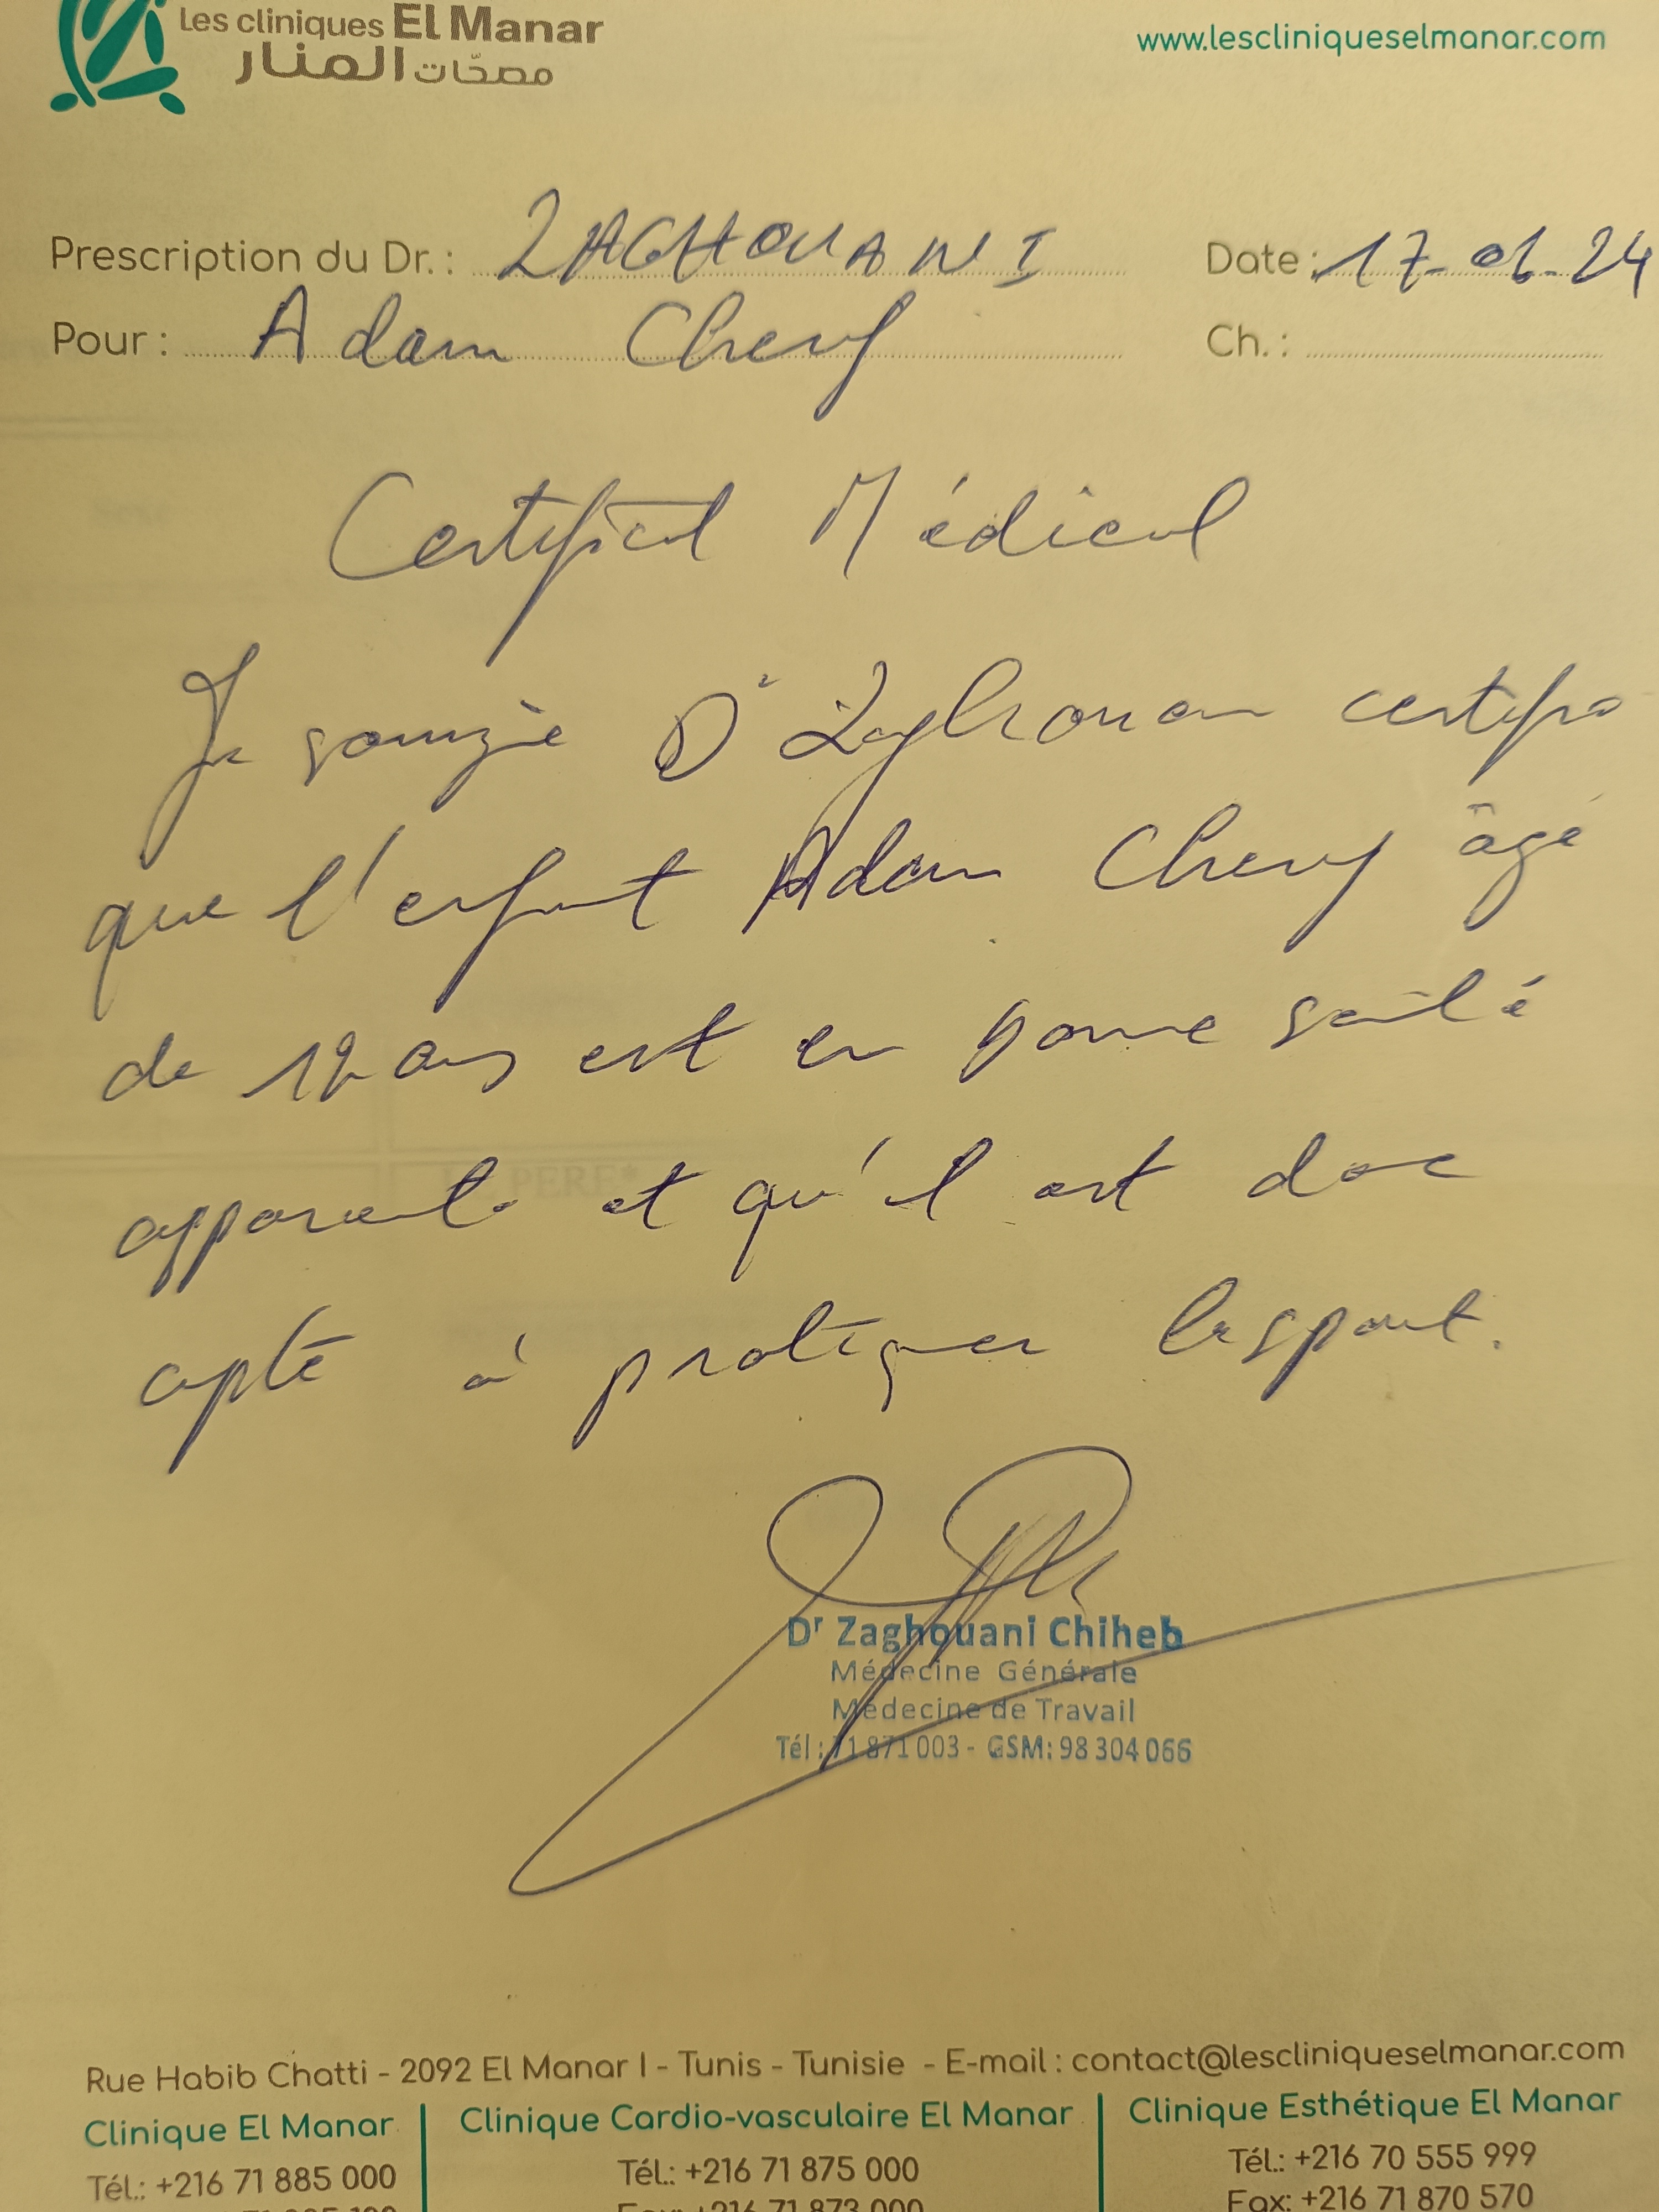 Les cliniques El Manar
مصحّات المنار
www.lescliniqueselmanar.com
Prescription du Dr. : ZAGHOUANI Date : 17-01-24
Pour : Adam Ch Ch. :
Certificat Médical
Je soussigné Dr Zaghouani certifie
que l'enfant Adam âgé
de 12 ans est en bonne santé
apparente et qu'il est donc
apte à pratiquer le sport.
Dr Zaghouani Chiheb
Médecine Générale
Médecine de Travail
Tél : 71 871 003 - GSM: 98 304 066
LE PERE*
Rue Habib Chatti - 2092 El Manar I - Tunis - Tunisie - E-mail : contact@lescliniqueselmanar.com
Clinique El Manar
Tél.: +216 71 885 000
Clinique Cardio-vasculaire El Manar
Tél.: +216 71 875 000
Fax: +216 71 873 000
Clinique Esthétique El Manar
Tél.: +216 70 555 999
Fax: +216 71 870 570